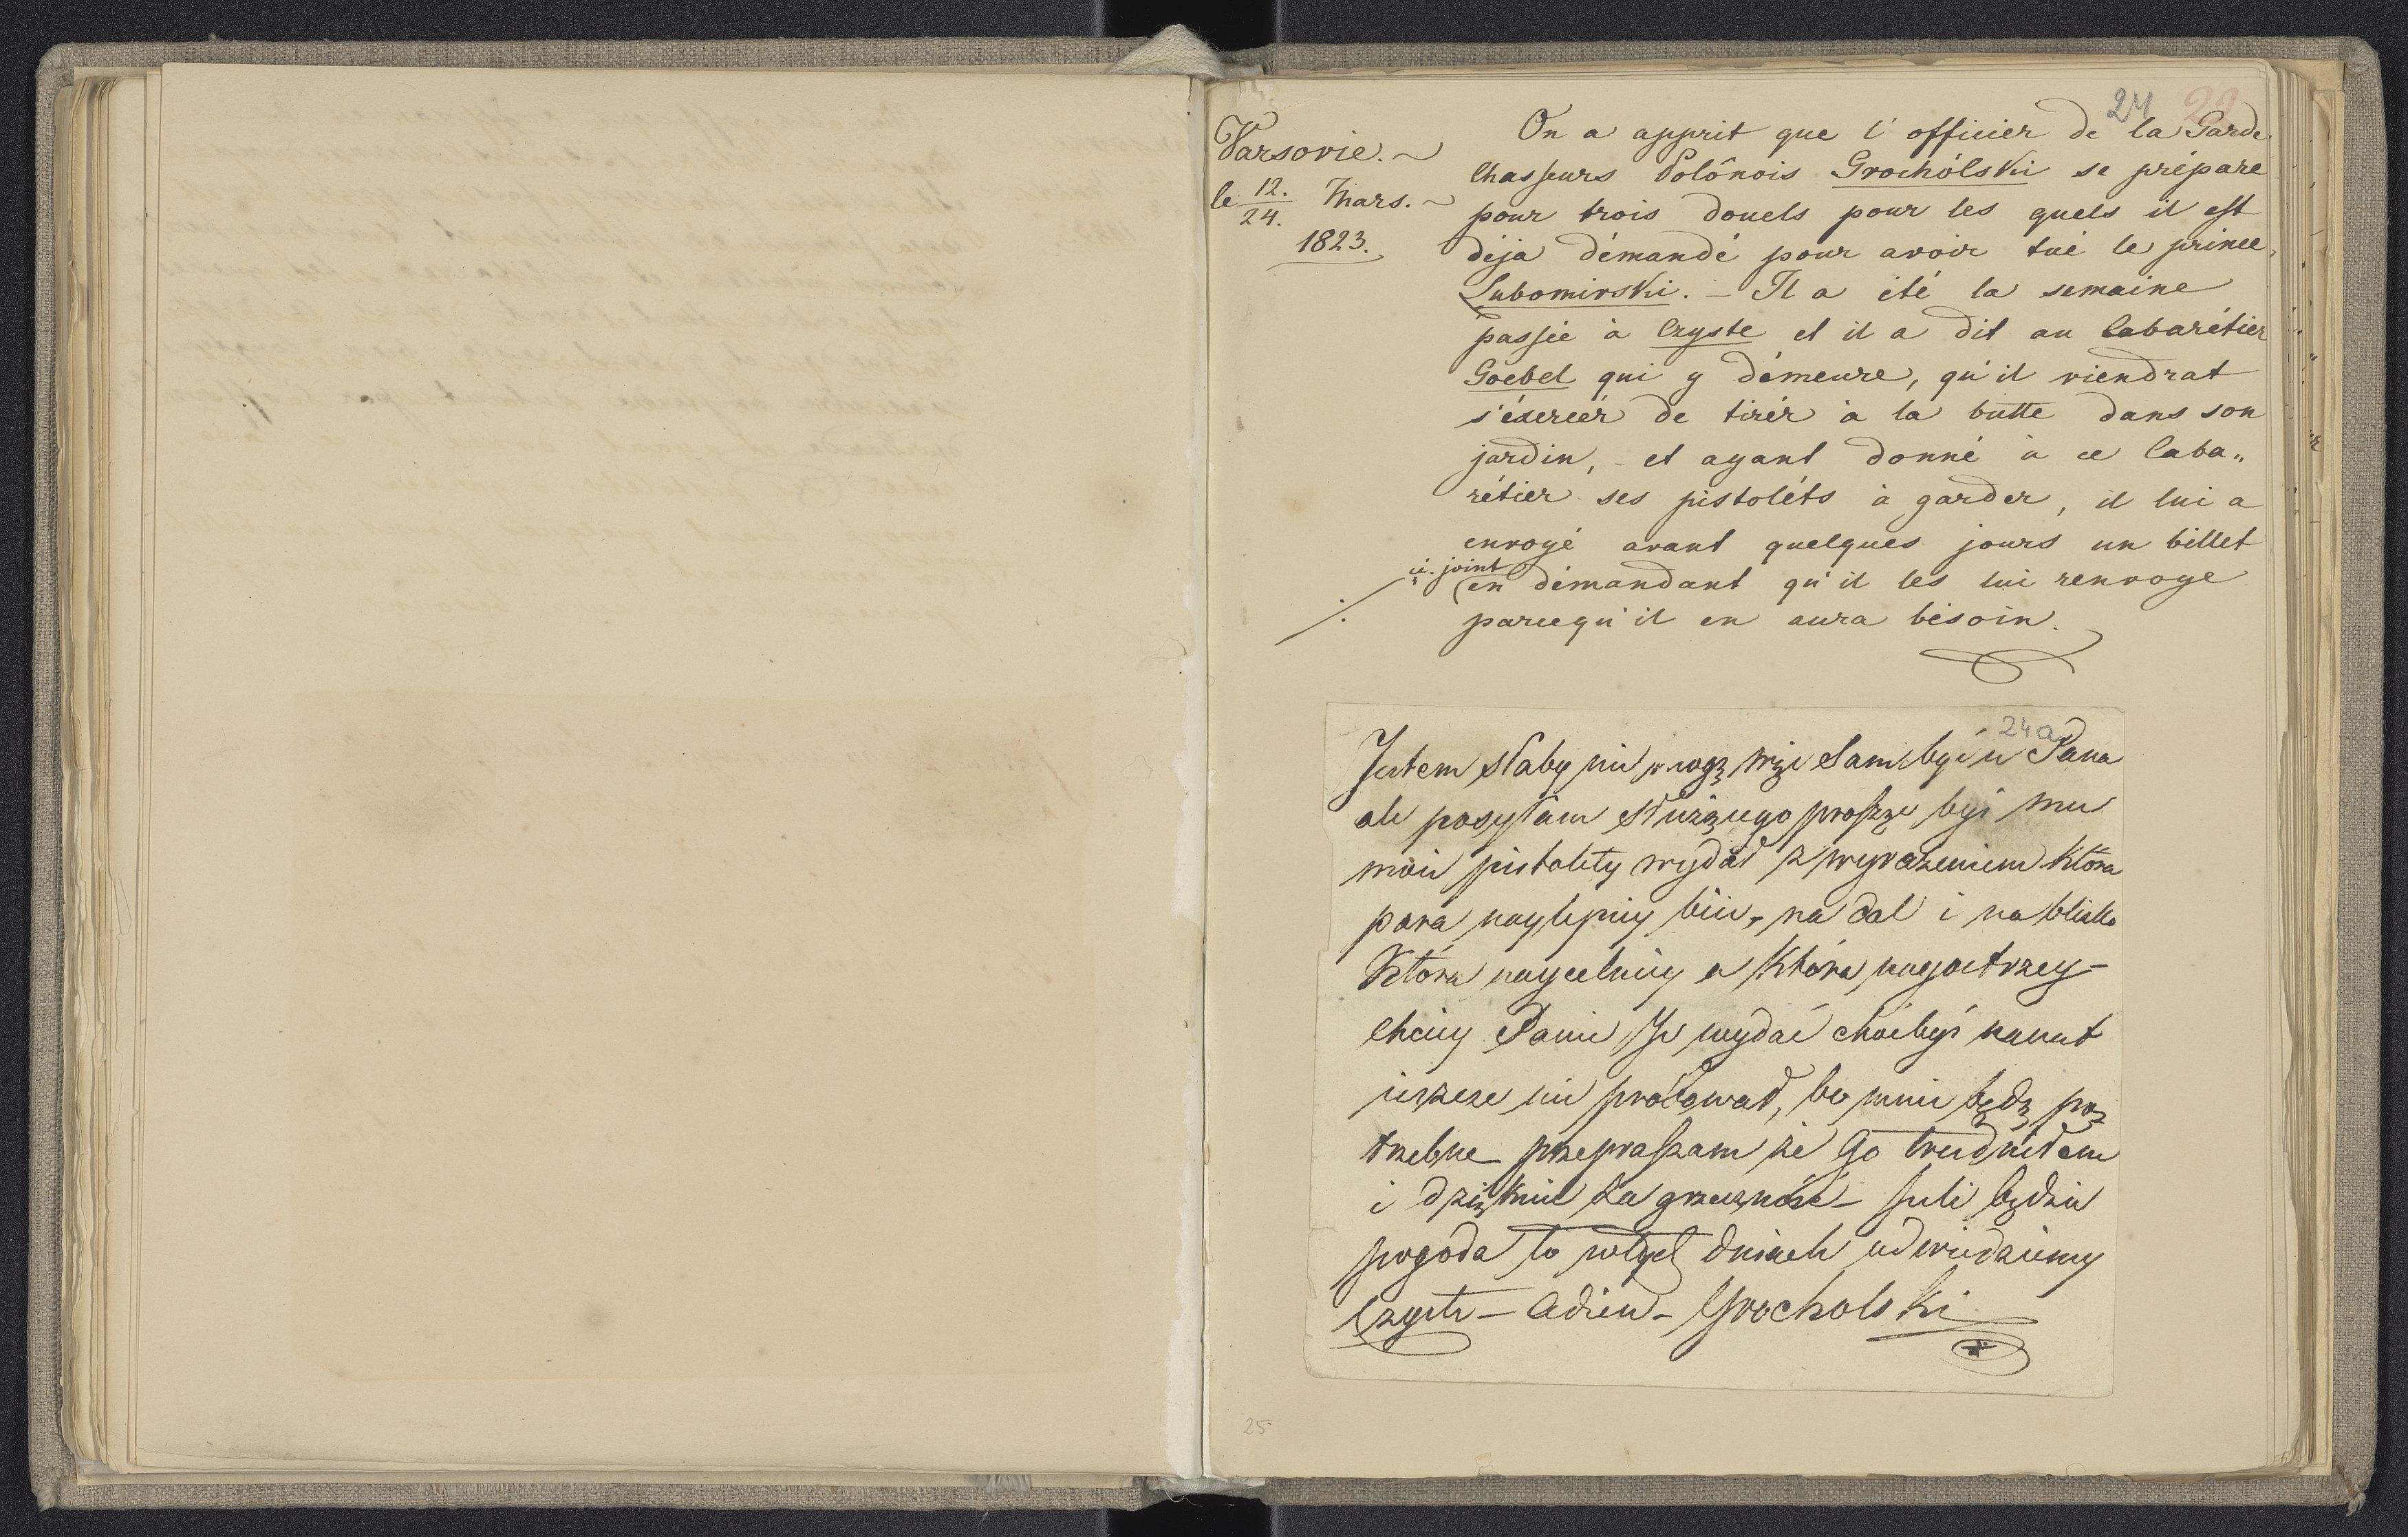 24 29
Varsovie. ~
le 12./24. Mars. ~
1823.
On a apprit que l'officier de la Garde
Chasseurs Polônois Grochólski se prépare
pour trois douels pour les quels il est
déja démandé pour avoir tué le prince
Lubomirski. — Il a été la semaine
passée à Czyste et il a dit au Cabarétier
Goebel qui y démeure, qu'il viendrat
s'éxercér de tirér à la butte dans son
jardin, - et ayant donné à ce Caba„
rétier ses pistoléts à garder, il lui a
envoyé avant quelques jours un billet
ci-joint
en démandant qu'il les lui renvoye
parcequ'il en aura bésoin.
24a
Jestem słaby nie mogę więc sam być u Pana
ale posyłam służącego proszęć byś mu
moie pistolety wydał z wyrażeniem która
para naylepiey biie, na dal i na blisko
Która naycelniey a Która nayostrzey –
Chciey Panie Je wydać choćbyś nawet
ieszcze nie próbował, bo mnie będą po
trzebne przepraszam że Go trudniłem
i dziękuie za grzeczność – Jeli będzie
pogoda to w tych dniach odwiedziemy
Czyste – Adieu – Grocholski
25